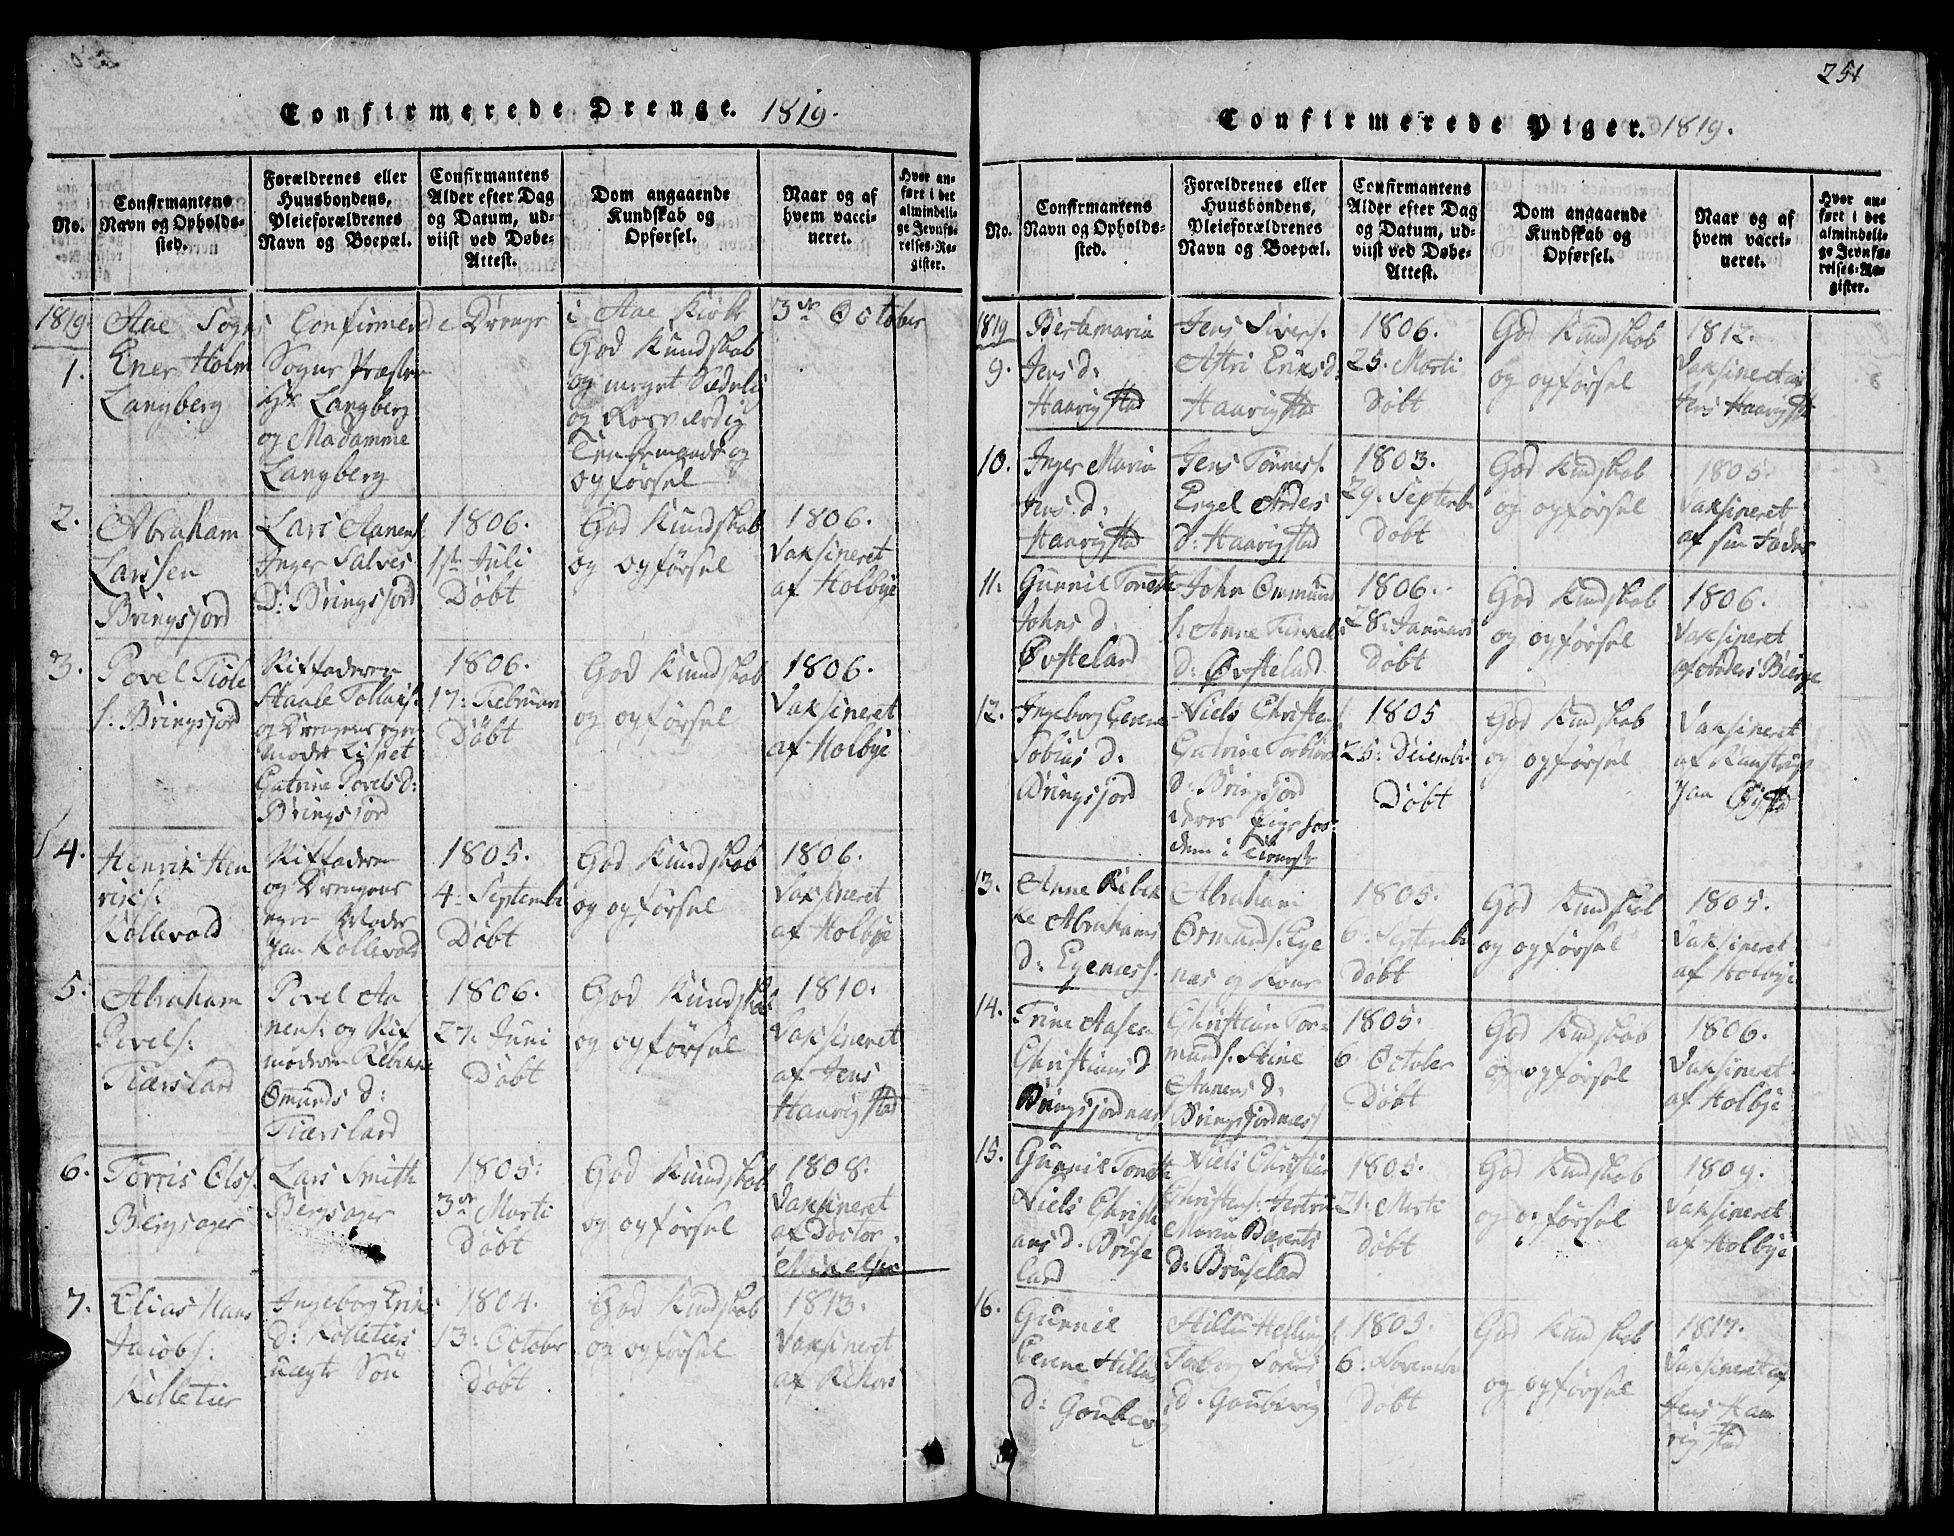 Confirmerede Drenge. 1819.
No.
Confirmantens
Navn og Opholds-
sted.
Forældrenes eller
Huusbondens,
Pleieforældrenes
Navn og Boepæl.
Confirmantens
Alder efter Dag
og Datum, ud-
viist ved Døbe-
Attest.
Dom angaaende
Kundskab og
Opførsel.
Naar og af
hvem vacci-
neret.
Hvor an-
ført i det
almindeli-
ge Jevnfø-
relses-Re-
gister.
1819. Aae Sogns Confirmerede Drenge i Aae Kirke 3de October
1.
Ener Holm
Langberg
Sogne Præsten
Hr Langberg
og Madamme
Langberg
God Kundskab
og meget Sædeli
og Rosværdig
og
opførsel
2.
Abraham
Larssen
Bringsjord
Lars Aanens
Inger Salves
D: Bringsjord
1806.
1st Juli
Døbt
God Kundskab
og opførsel
1806.
Vaksineret
af Holbye
3.
Povel Tiøls
s. Bringsjord
Stiffaderen
Staale Tollags.
og Drengens egen
Moder Lisbet
Catrine Povels D:
Bringsjor
1806.
17: Februari
Døbt
God Kundskab
og opførsel
1806.
Vaksineret
af Holbye
4.
Henrik Hen
riks.
Kollevold
Stiffaderen
og Drengens
egen Moder
Jan Kollevold
1805.
4. Septembe
Døbt
God Kundskab
og opførsel
1806.
Vaksineret
af Holbye
5.
Abraham
Povels:
Tiærsland
Povel Aa
nens: og Stif
moderen Rebekke
Omunds D:
Tiærsland
1806.
27: Juni
Døbt
God Kundskab
og opførsel
1810.
Vaksineret
af Jens
Haarigstad
6.
Torris Olss.
Bergsager
Lars Smith
Bergsager
1805:
3de Marti
Døbt
God Kundskab
og opførsel
1808.
Vaksineret
af Doctor
Mikelsen
7.
Elias Hans
Jacobs:
Kolletier
Ingeborg Erik
D: Kolletiers
uægte Søn
1804.
13: October
Døbt
God Kundskab
og opførsel
1813.
Vaksineret
af
251
Confirmerede Piger. 1819.
No.
Confirmantens
Navn og Opholds-
sted.
Forældrenes eller
Huusbondens,
Pleieforældrenes
Navn og Boepæl.
Confirmantens
Alder efter Dag
og Datum, ud-
viist ved Døbe-
Attest.
Dom angaaende
Kundskab og
Opførsel.
Naar og af
hvem vacci-
neret.
Hvor an-
ført i det
almindeli-
ge Jevnfø-
relses-Re-
gister.
1819
9.
Bertemaria
Jens d:
Haarigstad
Jens Sivers.
Astri Eriks d:
Haarigstad
1806.
25. Marti
Døbt
God Kundskab
og opførsel
1812.
Vaksineret af
Jens Haarigstad
10.
Inger Maria
Jens d:
Haarigstad
Jens Tønnes.
Engel Anders
d: Haarigstad
1803.
29. Septembe
Døbt
God Kundskab
og opførsel
1805.
Vaksineret
af sin Fader
11.
Gunnil Tonette
Johns d:
Øvsteland
John Ommund
s. Anne Tinkel
d: Øvsteland
1806.
28: Januari
Døbt
God Kundskab
og opførsel
1806.
Vaksineret
af Anders Bierge
12.
Ingeborg Gerene
Tobias d:
Bringsjord
Niels Christen
Catrine Torbiørns
d: Bringsjord
1805
25: Decembe
Døbt
God Kundskab
og opførsel
Vaksineret
af
13.
Anne Rebek
ke Abrahams
D: Egenæss.
Abraham
Ormunds. Ege
næs og Kone
1805.
Septembe
Døbt
God Kundskab
og opførsel
1805.
Vaksineret
af Holbye
14.
Trine Aasen
Christians d
Bringsjordnæs
Christian Tor-
munds. Stine
Aanens d:
Bringsjordnæs
1805.
6. October
Døbt
God Kundskab
og opførsel
1806.
Vaksineret
af Holbye
15.
Gunnil Tonette
Niels Christi
ans d. Bruse
land
Niels Christian
Christens:
Maria Barents
D: Bruseland
1805.
21. Marti
Døbt
God Kundskab
og opførsel
1809.
Vaksineret
af Holbye
16.
Gunnil
Gerene Hilles
D: Gouberg
1805.
6: Novembe
Døbt
God Kundskab
og opførsel
1817.
Vaksineret af
Jens Haa
rigstad